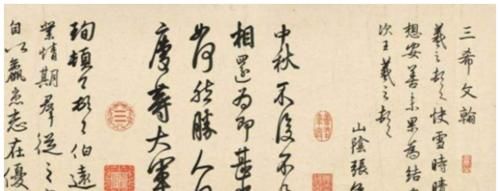 三希文翰
羲之頓首快雪時晴
想安善未果為結
次王羲之頓首
山陰張
中秋不復不
相還為即甚
如何然勝人
慶等大軍
珣頓首頓首伯遠
業情期群從之
自以羸患志在優